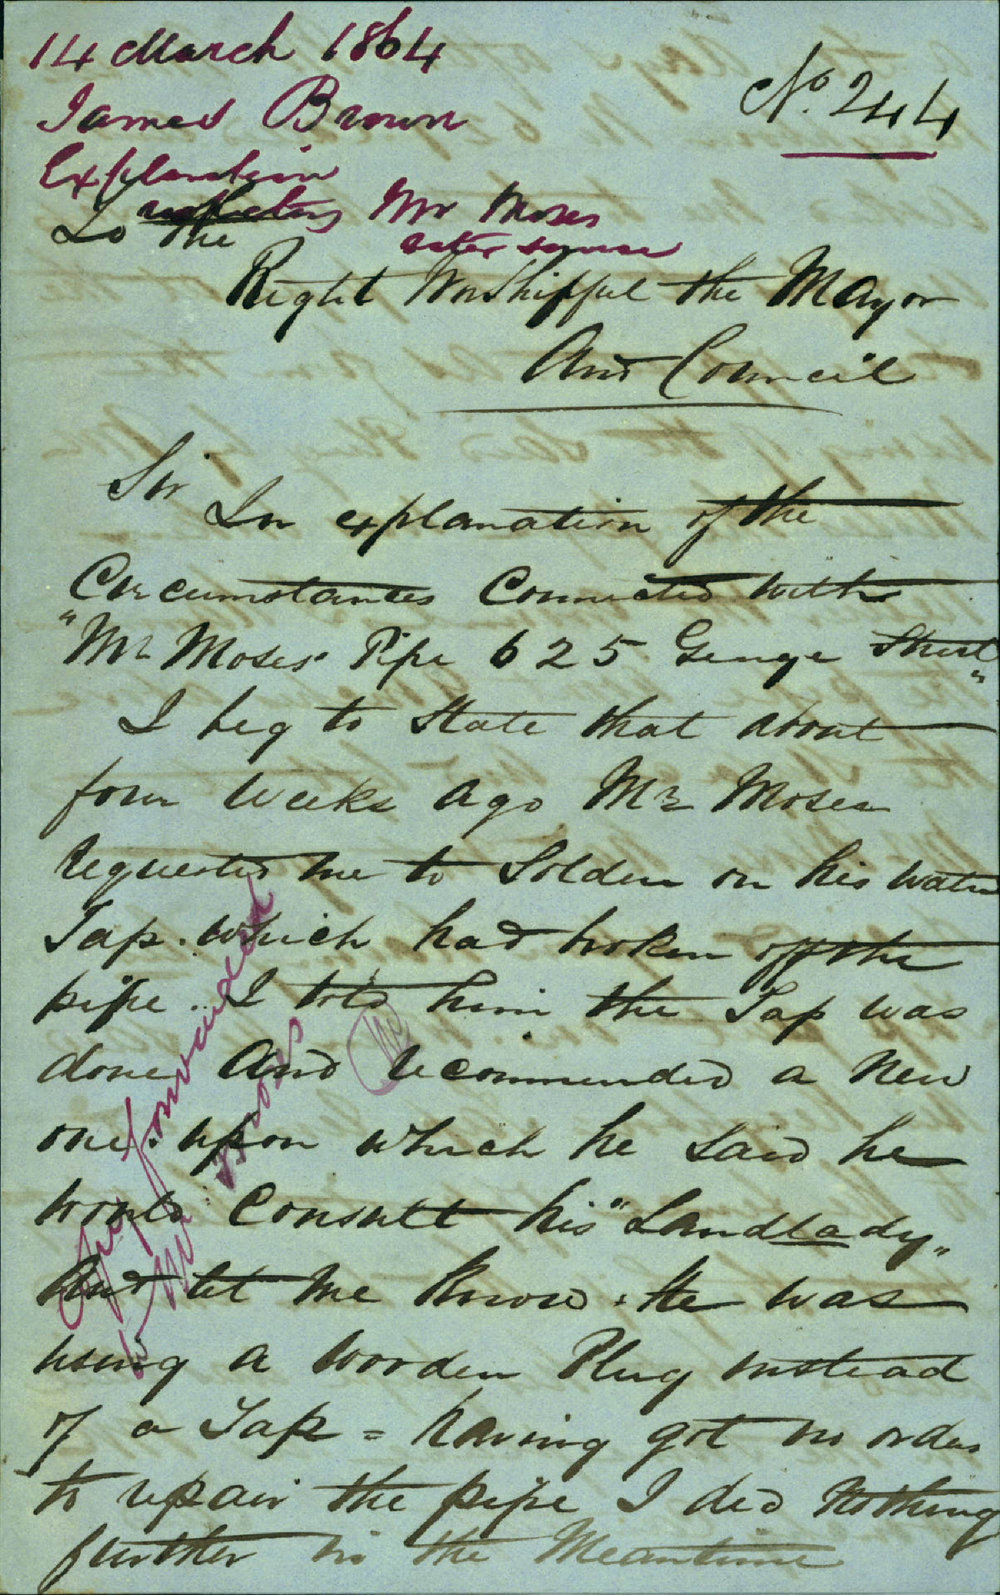 14 March 1864
No. 244
James Brown
Explanation
respecting Mr Moses
water service
To the
Right Worshipful the Mayor
And Council
Sir
In explanation of the
Circumstances Connected with
"Mr Moses Pipe 625 George Street"
I beg to State that about
four weeks ago Mr Moses
requested me to Solder on his water
Tap. which had broken off the
pipe. I told him the Tap was
done And recommended a New
one. upon which he Said he
would Consult his "Landlady"
And let me Know. He was
using a wooden Plug instead
of a Tap = having got no order
to repair the pipe I did Nothing
further in the Meantime
Copy forwarded
to Mr Moses